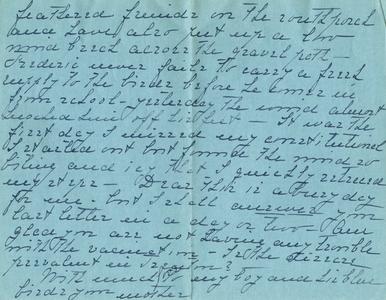 feathered friends on the south porch
and have also put up a two
more bench across the gravel path -
Frederic never fails to carry a fresh
supply to the birds before he comes in
from school - yesterday the wind almost
him off his feet - It was the
first day I missed my constitutional
I started out but found the wind so
biting and icy that I quickly retraced
my steps - Dear this is a busy day
for me - but I shall answer your
last letter in a day or two - I am
glad you are not having any trouble
with the vaccination - Is the
prevalent in
With much love to my boy and his blue
birds your mother